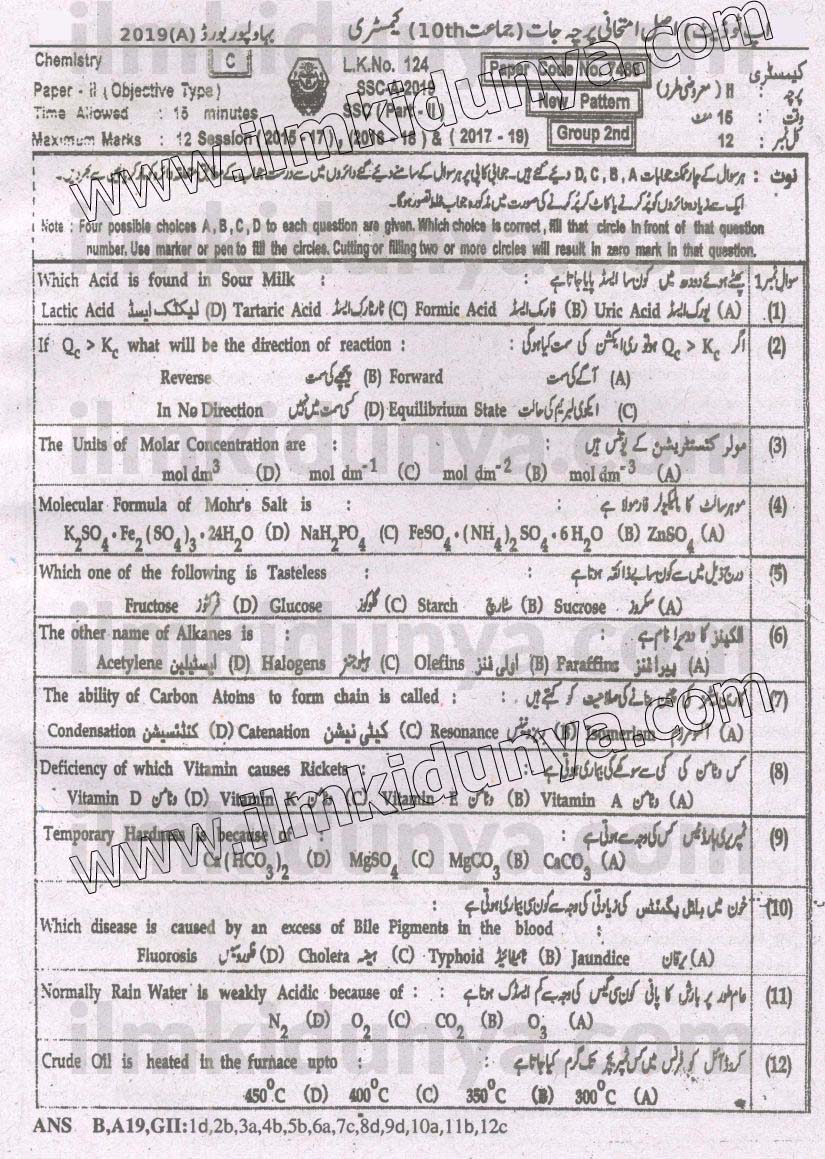 اپ ٹو ڈیٹ اصل امتحانی پرچہ جات (جماعت 10th) کیمسٹری بہاولپور بورڈ 2019(A)
Chemistry C L.K.No. 124 Paper Code No. کیمسٹری
Paper - II (Objective Type) SSC-A-2019 New Pattern پرچہ : II (معروضی طرز)
Time Allowed : 15 minutes SSC Part - II وقت : 15 منٹ
Maximum Marks : 12 Session (2015 -17), (2016 - 18) & (2017 - 19) Group 2nd کل نمبر : 12
نوٹ : ہر سوال کے چار ممکنہ جوابات D, C, B, A دیئے گئے ہیں۔ جوابی کاپی پر ہر سوال کے سامنے دیئے گئے دائروں میں سے درست جواب کے مطابق متعلقہ دائرہ کو مارکر یا پین سے بھر دیں۔
ایک سے زیادہ دائروں کو پُر کرنے یا کاٹ کر پُر کرنے کی صورت میں مذکورہ جواب غلط تصور ہوگا۔
Note : Four possible choices A, B, C, D to each question are given. Which choice is correct, fill that circle in front of that question
number. Use marker or pen to fill the circles. Cutting or filling two or more circles will result in zero mark in that question.
Which Acid is found in Sour Milk : پھٹے ہوئے دودھ میں کون سا ایسڈ پایا جاتا ہے سوال نمبر 1
Lactic Acid لیکٹک ایسڈ (D) Tartaric Acid ٹارٹارک ایسڈ (C) Formic Acid فارمک ایسڈ (B) Uric Acid یورک ایسڈ (A) (1)
If Qc > Kc what will be the direction of reaction : اگر Qc > Kc ہو تو ری ایکشن کی سمت کیا ہوگی : (2)
Reverse پیچھے کی سمت (B) Forward آگے کی سمت (A)
In No Direction کسی سمت میں نہیں (D) Equilibrium State ایکوی لبریم کی حالت (C)
The Units of Molar Concentration are : مولر کنسنٹریشن کے یونٹس ہیں (3)
mol dm³ (D) mol dm⁻¹ (C) mol dm⁻² (B) mol dm⁻³ (A)
Molecular Formula of Mohr's Salt is : موہر سالٹ کا مالیکیولر فارمولا ہے (4)
K₂SO₄·Fe₂(SO₄)₃·24H₂O (D) NaH₂PO₄ (C) FeSO₄·(NH₄)₂SO₄·6H₂O (B) ZnSO₄ (A)
Which one of the following is Tasteless : درج ذیل میں سے کون سا بے ذائقہ ہوتا ہے (5)
Fructose فرکٹوز (D) Glucose گلوکوز (C) Starch سٹارچ (B) Sucrose سکروز (A)
The other name of Alkanes is : الکینز کا دوسرا نام ہے (6)
Acetylene ایسٹیلین (D) Halogens ہیلوجنز (C) Olefins اولی فنز (B) Paraffins پیرافنز (A)
The ability of Carbon Atoins to form chain is called : بنانے کی صلاحیت کو کہتے ہیں (7)
Condensation کنڈنسیشن (D) Catenation کیٹی نیشن (C) Resonance (B) Isomerism (A)
Deficiency of which Vitamin causes Rickets : کس وٹامن کی کمی سے سوکھے کی بیماری ہوتی ہے (8)
Vitamin D وٹامن (D) Vitamin K وٹامن (C) Vitamin E وٹامن (B) Vitamin A وٹامن (A)
Temporary Hardness is because of : ٹمپریری ہارڈنیس کس کی وجہ سے ہوتی ہے : (9)
Ca(HCO₃)₂ (D) MgSO₄ (C) MgCO₃ (B) CaCO₃ (A)
خون میں بائل پگمنٹس کی زیادتی کی وجہ سے کون سی بیماری ہوتی ہے : (10)
Which disease is caused by an excess of Bile Pigments in the blood :
Fluorosis فلوروسس (D) Cholera ہیضہ (C) Typhoid ٹائیفائیڈ (B) Jaundice یرقان (A)
Normally Rain Water is weakly Acidic because of : عام طور پر بارش کا پانی کون سی گیس کی وجہ سے کم ایسڈک ہوتا ہے : (11)
N₂ (D) O₂ (C) CO₂ (B) O₃ (A)
Crude Oil is heated in the furnace upto : کروڈ آئل کو فرنس میں کس ٹمپریچر تک گرم کیا جاتا ہے : (12)
450°C (D) 400°C (C) 350°C (B) 300°C (A)
ANS B,A19,GII:1d,2b,3a,4b,5b,6a,7c,8d,9d,10a,11b,12c
www.ilmkidunya.com
www.ilmkidunya.com